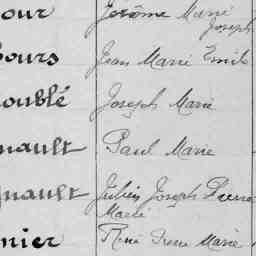 our Jérôme Marie
Joseph
ours Jean Marie Emile
oublé Joseph Marie
nault Paul Marie
nault Julien Joseph Pierre
Marie
nier René Irene Marie